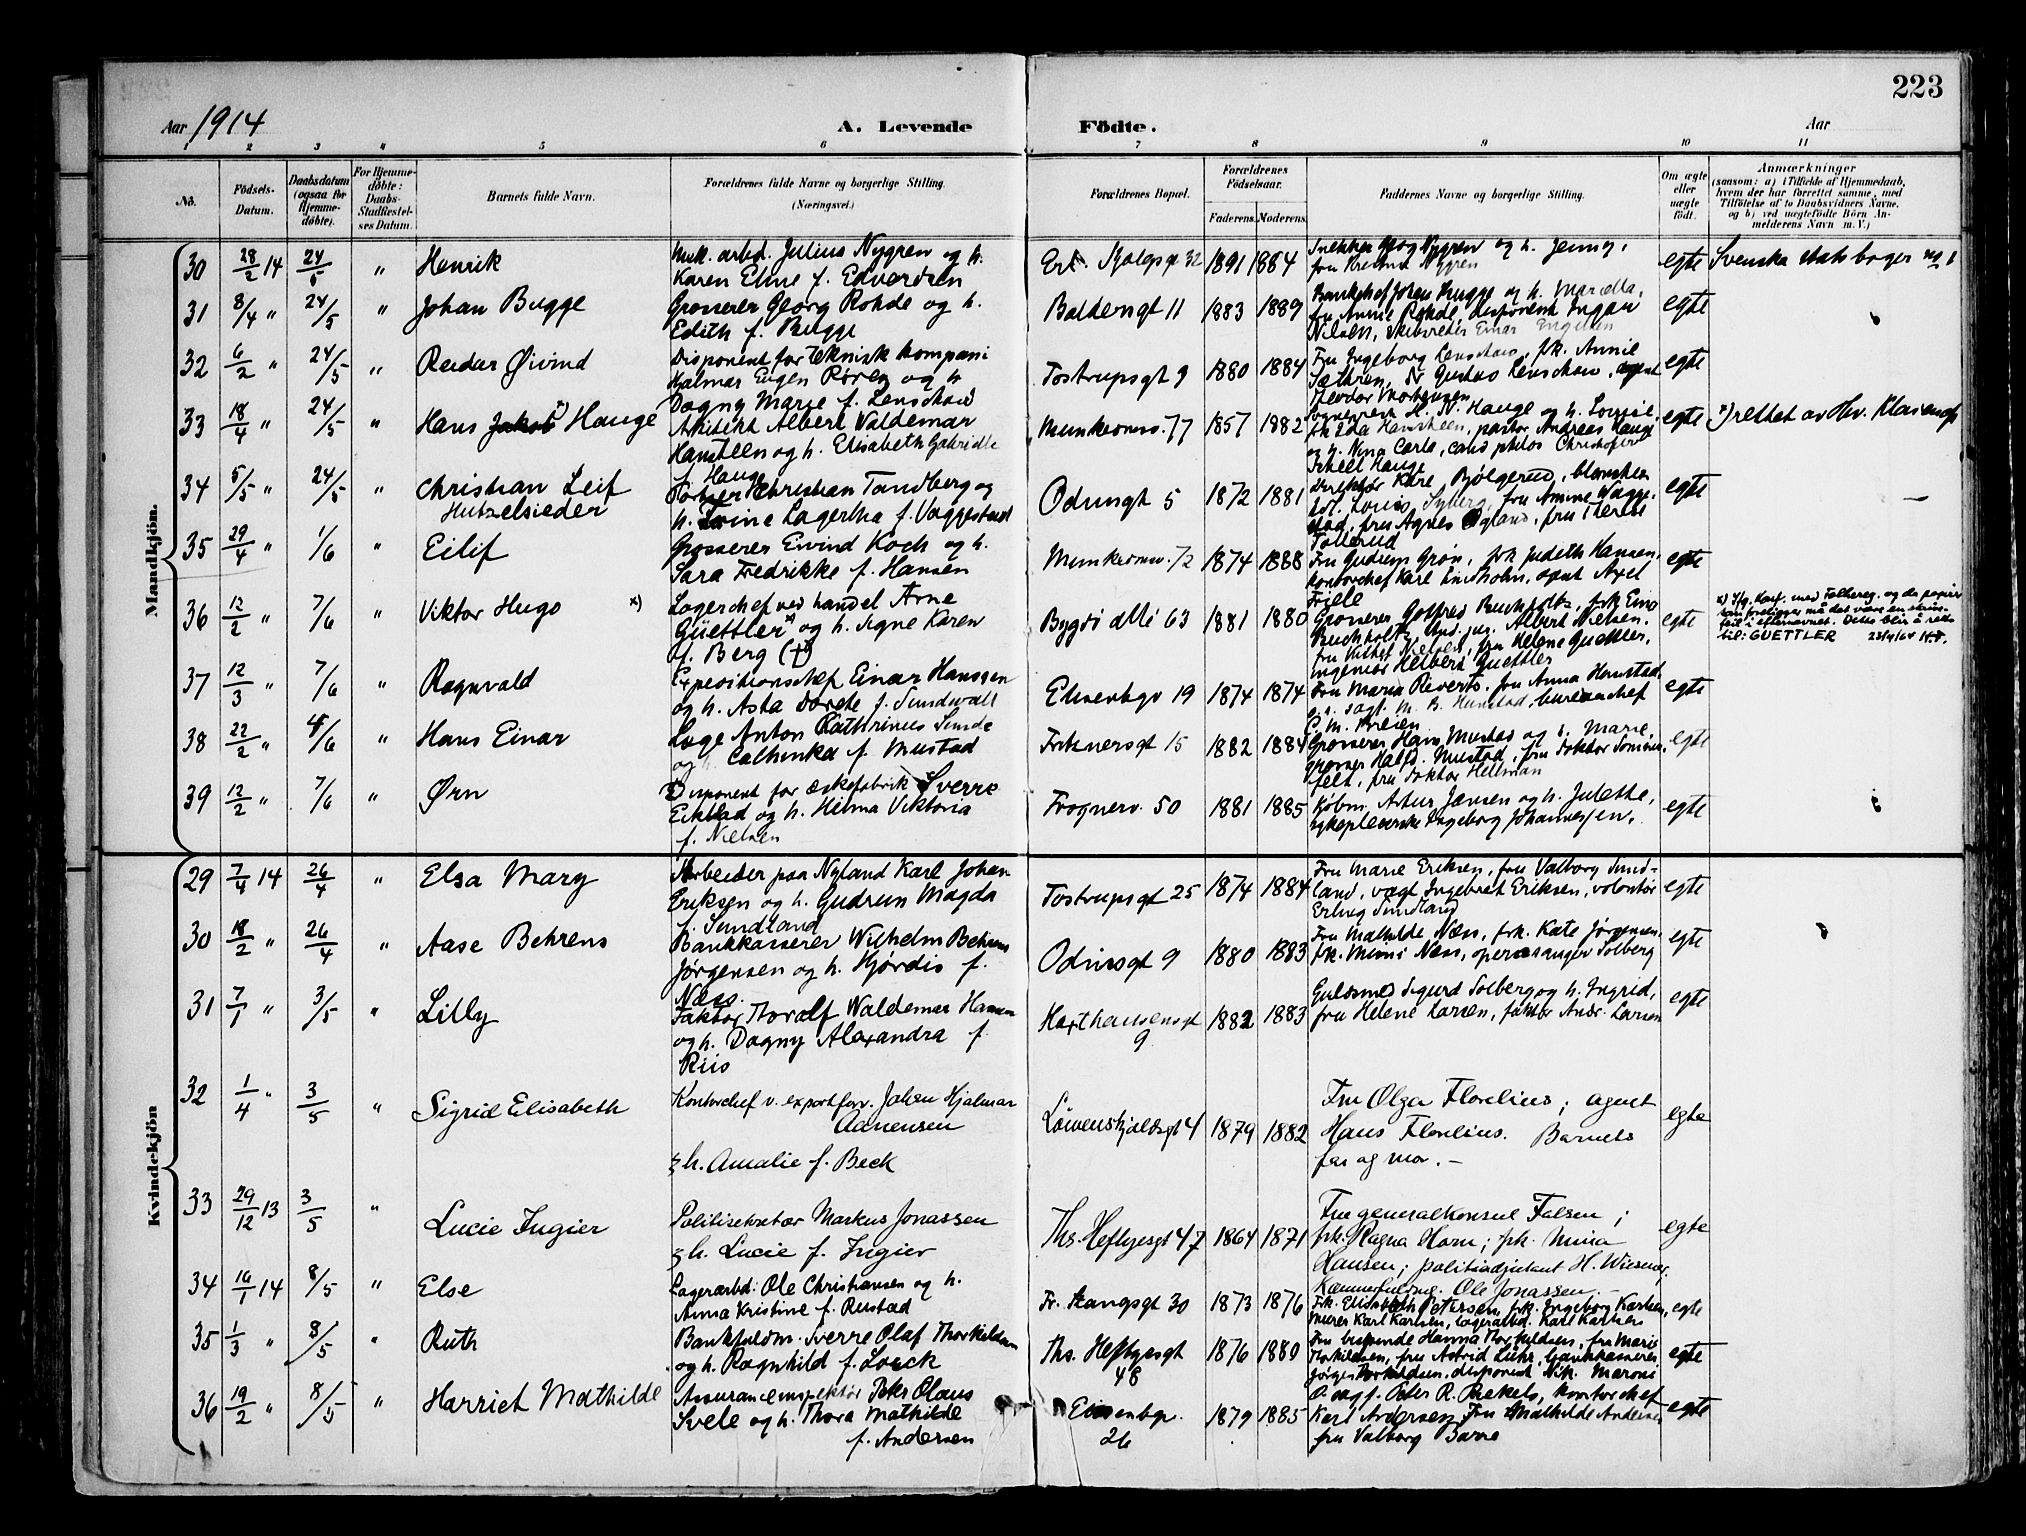 223
Aar 1914
A. Levende Födte.
Aar
1 2 3 4 5 6 7 8 9 10 11
No.
Födsels-Datum.
Daabsdatum (ogsaa for Hjemme-døbte).
For Hjemme-døbte: Daabs-Stadfæstel-ses Datum.
Barnets fulde Navn.
Forældrenes fulde Navne og borgerlige Stilling.
(Næringsvei.)
Forældrenes Bopæl.
Forældrenes Födselsaar.
Faderens. Moderens.
Faddernes Navne og borgerlige Stilling.
Om ægte eller uægte født.
Anmærkninger
(saasom: a) i Tilfælde af Hjemmedaab, hvem der har forrettet samme, med Tilføielse af to Daabsvidners Navne, og b) ved uægtefødte Börn An-melderens Navn m. V.)
Mandkjön.
30 28/2 14 24/5 " Henrik
Mek. arbd. Julius Nygren og h.
Karen Eline f. Edvardsen
1891 1884
Nygren og h. Jenny,
egte Svenska statsborger
31 8/4 " 24/5 " Johan Bugge
Grosserer Georg Rohde og h.
Edith f. Bugge
Baldersgt 11 1883 1889
Bankchef Johan Bugge og h. Marietta,
fru Annie Rohde, disponent
Nielsen, Einar
egte
32 6/2 " 24/5 " Reidar Øivind
Disponent for teknisk kompani
Hjalmar Eugen Røren og h.
Dagny Marie f. Lenschau
Tostrupsgt 9 1880 1884
Fru Ingeborg Lenschau, frk. Annie
Sæthren, Gustav Lenschau, agent
Theodor Mortensen
egte
33 18/4 " 24/5 " Hans Jakob x) Hauge
Arkitekt Albert Valdemar
Hansteen og h. Elisabeth Gabrielle
f. Hauge
Munkedamsv. 77 1857 1882
H. N. Hauge og h. Louise,
frk Ida Hansteen, pastor Andreas Hauge
og h. Nina Carla, cand. philos Christopher
Hauge
egte x) rettet av
34 5/5 " 24/5 " Christian Leif
Hutzelsieder
Christian Tandberg og
h. Lagertha f. Vaggestad
Odinsgt 5 1872 1881
Direktør Kare Bjølgerud,
Louis fru Amine Vagge-
stad, fru Agnes Øgland, fru Therese
Tollerud
egte
35 29/4 " 1/6 " Eilif
Grosserer Eivind Koch og h.
Sara Fredrikke f. Hansen
Munkedamsv. 72 1874 1888
Fru Gudrun Grøn, frk Judith Hansen,
kontorchef Karl Lindholm, agent Axel
Friele
egte
36 12/2 " 7/6 " Viktor Hugo x)
Lagerchef ved handel Arne
Güettler x) og h. Signe Karen
f. Berg (+)
Bygdø Allé 63 1881 1880
Grosserer Gotfred Buchholtz, frk
Buchholtz, stud. jur. Albert Nielsen,
fru Nielsen, fru Helene Guettler,
Ingeniør Herbert Guettler
egte
x) Iflg. konf. med Folkereg. og de papirer
han foreligger må det være en skrive-
feil i etternavnet. Dette blir å rette
til: GUETTLER 23/4/64
37 12/3 " 7/6 " Ragnvald
Expeditionschef Einar Hanssen
og h. Asta Dorete f. Sundwall
Eilenbgv 19 1874 1874
Fru Maria Reverts, fru Anna Hunstad
o. r. sagf. M. B. Hunstad, bureauchef
C. M. Breien
egte
38 22/2 " 4/6 " Hans Einar
Læge Anton Cathrinus Sunde
og h. Cathinka f. Mustad
Frknersgt 15 1882 1884
Grosserer Hans Mustad og h. Marie,
grosserer Halfd. Mustad, fru doktor
felt, fru doktor Hellman
egte
39 12/2 " 7/6 " Ørn
Disponent for æskefabrik Sverre
Eikstad og h. Helma Viktoria
f. Nielsen
Frognerv. 50 1881 1885
Købm. Artur Jensen og h. Juletthe,
sykepleierske Ingeborg Johannessen.
egte
Kvindekjön
29 7/4 14 26/4 " Elsa Mary
Arbeider paa Nyland Karl Johan
Eriksen og h. Gudrun Magda
f. Sundland
Tostrupsgt 25 1874 1884
Fru Marie Eriksen, fru Valborg Sund-
land, vagt Ingebret Eriksen, volontør
Erling Sundland
egte
30 18/2 " 26/4 " Aase Behrens
Bankkasserer Wilhelm Behrens
Jørgensen og h. Hjørdis f.
Næss.
Odinsgt 9 1880 1883
Fru Mathilde Næss, frk. Kate Jørgensen,
frk. Mimi Næss, operasanger Solberg
egte
31 7/1 " 3/5 " Lilly
Faktor Thoralf Waldemar Hansen
og h. Dagny Alexandra f.
Riis
Haxthausensgt
9 1882 1883
Guldsmed Sigurd Solberg og h. Ingrid,
fru Helene Larsen, faktor Andr. Larsen
egte
32 1/4 " 3/5 " Sigrid Elisabeth
Kontorchef v. exportforr. Johan Hjalmar
Aanensen
& h. Amalie f. Beck
Løvenskjoldsgt 4 1879 1882
Fru Olga Florelius; agent
Hans Florelius. Barnets
far og mor. —
egte
33 29/12 13 3/5 " Lucie Ingier
Politisekretær Markus Jonassen
& h. Lucie f. Ingier
Ths. Heftyesgt 47 1864 1871
Fru generalkonsul Falsen;
frk. Ragna Horn; frk. Mina
Hansen; politiadjutant H. Wiesener;
Kæmnerfuldm. Ole Jonassen. —
egte
34 16/1 14 8/5 " Else
Lagerarbd. Ole Christiansen og h.
Anna Kristine f. Rustad
Fr. Stangsgt 30 1873 1876
Frk. Elisabeth Petersen, frk. Ingeborg Karlsen,
murer Karl Karlsen, lagerarbd. Karl Karlsen
egte
35 1/3 " 8/5 " Ruth
Bankfuldm. Sverre Olaf Thorkildsen
og h. Ragnhild f. Lorck
Ths. Heftyesgt
48 1876 1880
Fru Hanna Thorkildsen, fru Marie
Thorkildsen, fru Astrid Lühr, bankkasserer
Jørgen Thorkildsen, disponent Nik. Maroni
egte
36 19/2 " 8/5 " Harriet Mathilde
Assuranceinspektør Peter Olaus
Svele og h. Thora Mathilde
f. Andersen
Eisenbgv.
26 1879 1885
O. sagf. Peter R. Brekels, kontorchef
Karl Andersen, Fru Mathilde Andersen
fru Valborg Barre
egte